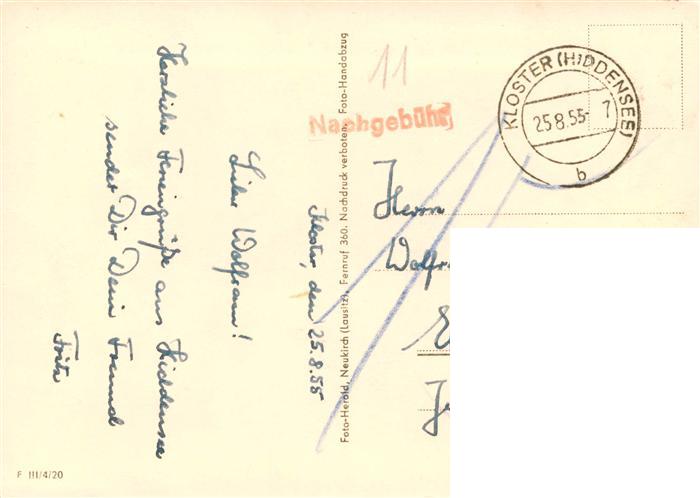 Kloster, den 25.8.55
Lieber Wolfram!
Herzliche Feriengrüße aus Hiddensee
sendet Dir Dein Freund
Fritz
F III/4/20
Foto-Herold, Neukirch (Lausitz), Fernruf 360. Nachdruck verboten. Foto-Handabzug
11
Nachgebühr
KLOSTER (HIDDENSEE)
25.8.55-7
b
Herrn